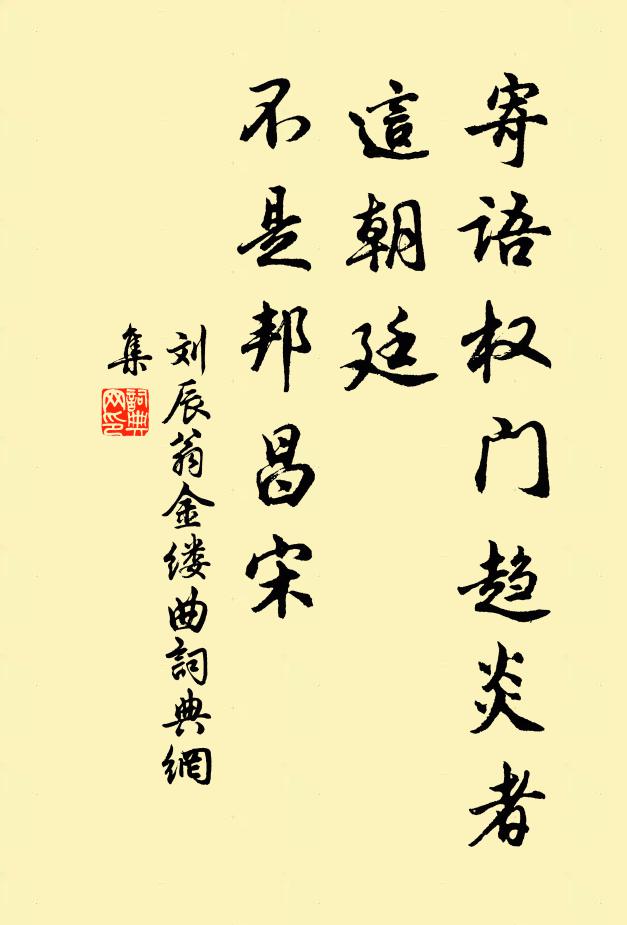 寄语权门趋炎者
這朝廷
不是邦昌宋
刘辰翁金缕曲詞典網
集
詞典
网印